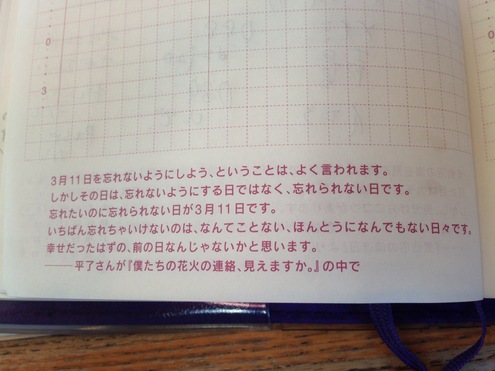 0
3
3月11日を忘れないようにしよう、ということは、よく言われます。
しかしその日は、忘れないようにする日ではなく、忘れられない日です。
忘れたいのに忘れられない日が3月11日です。
いちばん忘れちゃいけないのは、なんてことない、ほんとうになんでもない日々です。
幸せだったはずの、前の日なんじゃないかと思います。
——平了さんが『僕たちの花火の連絡、見えますか。』の中で